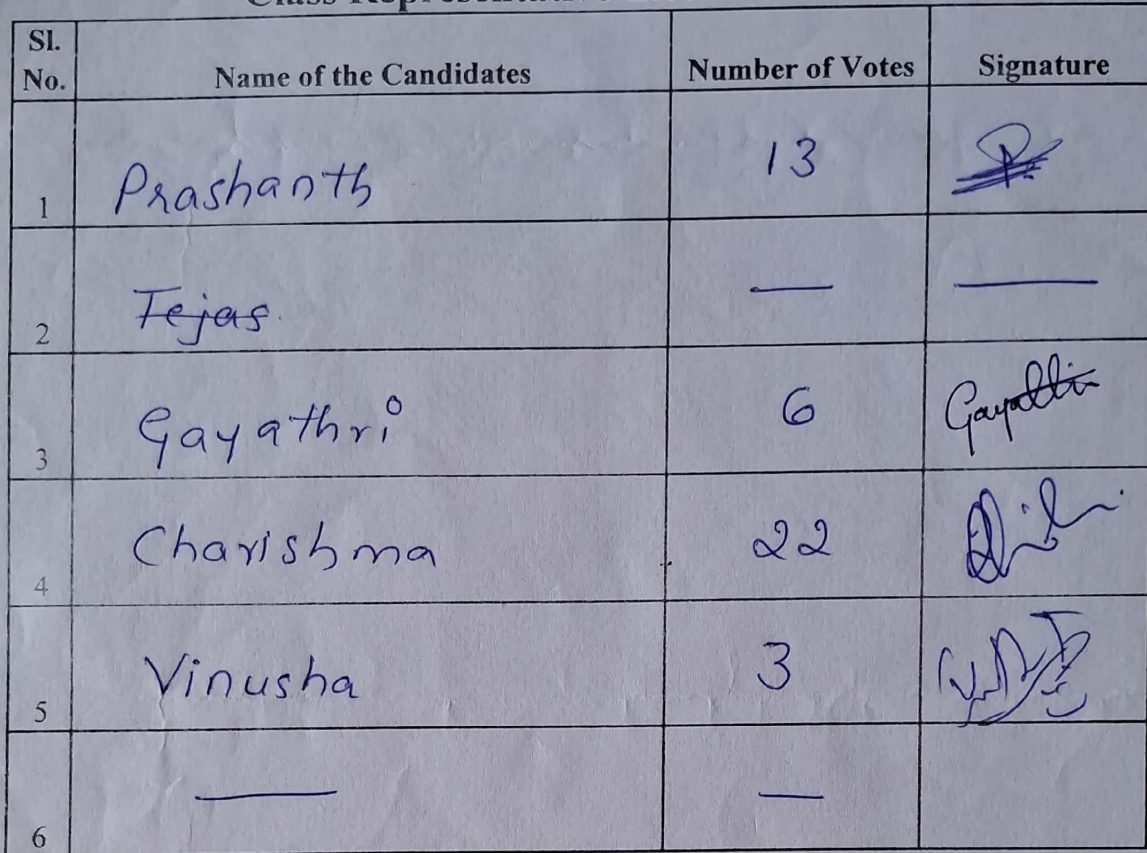 Sl. No. Name of the Candidates Number of Votes Signature
1 Prashanth 13
2 Tejas — —
3 Gayathri 6 Gayathri
4 Charishma 22
5 Vinusha 3
6 — —